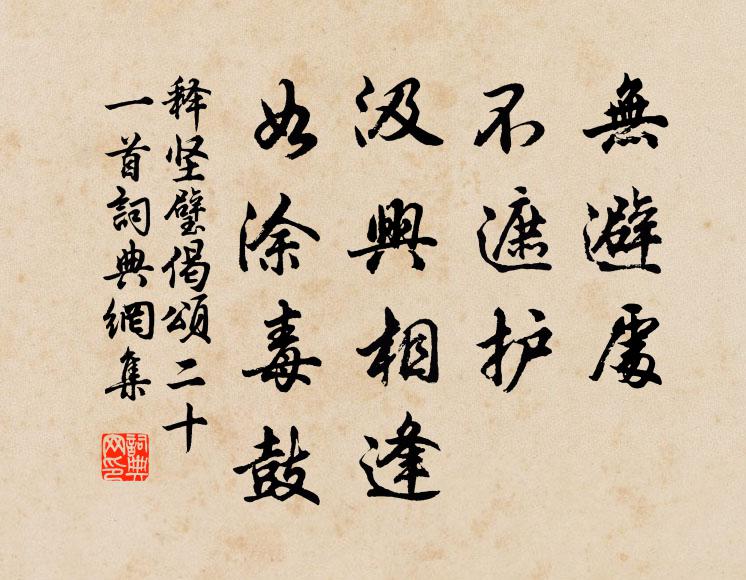 無避處
不遮护
汲興相逢
如涂毒鼓
释坚璧偈頌二十
一首詞典網集
詞典网印